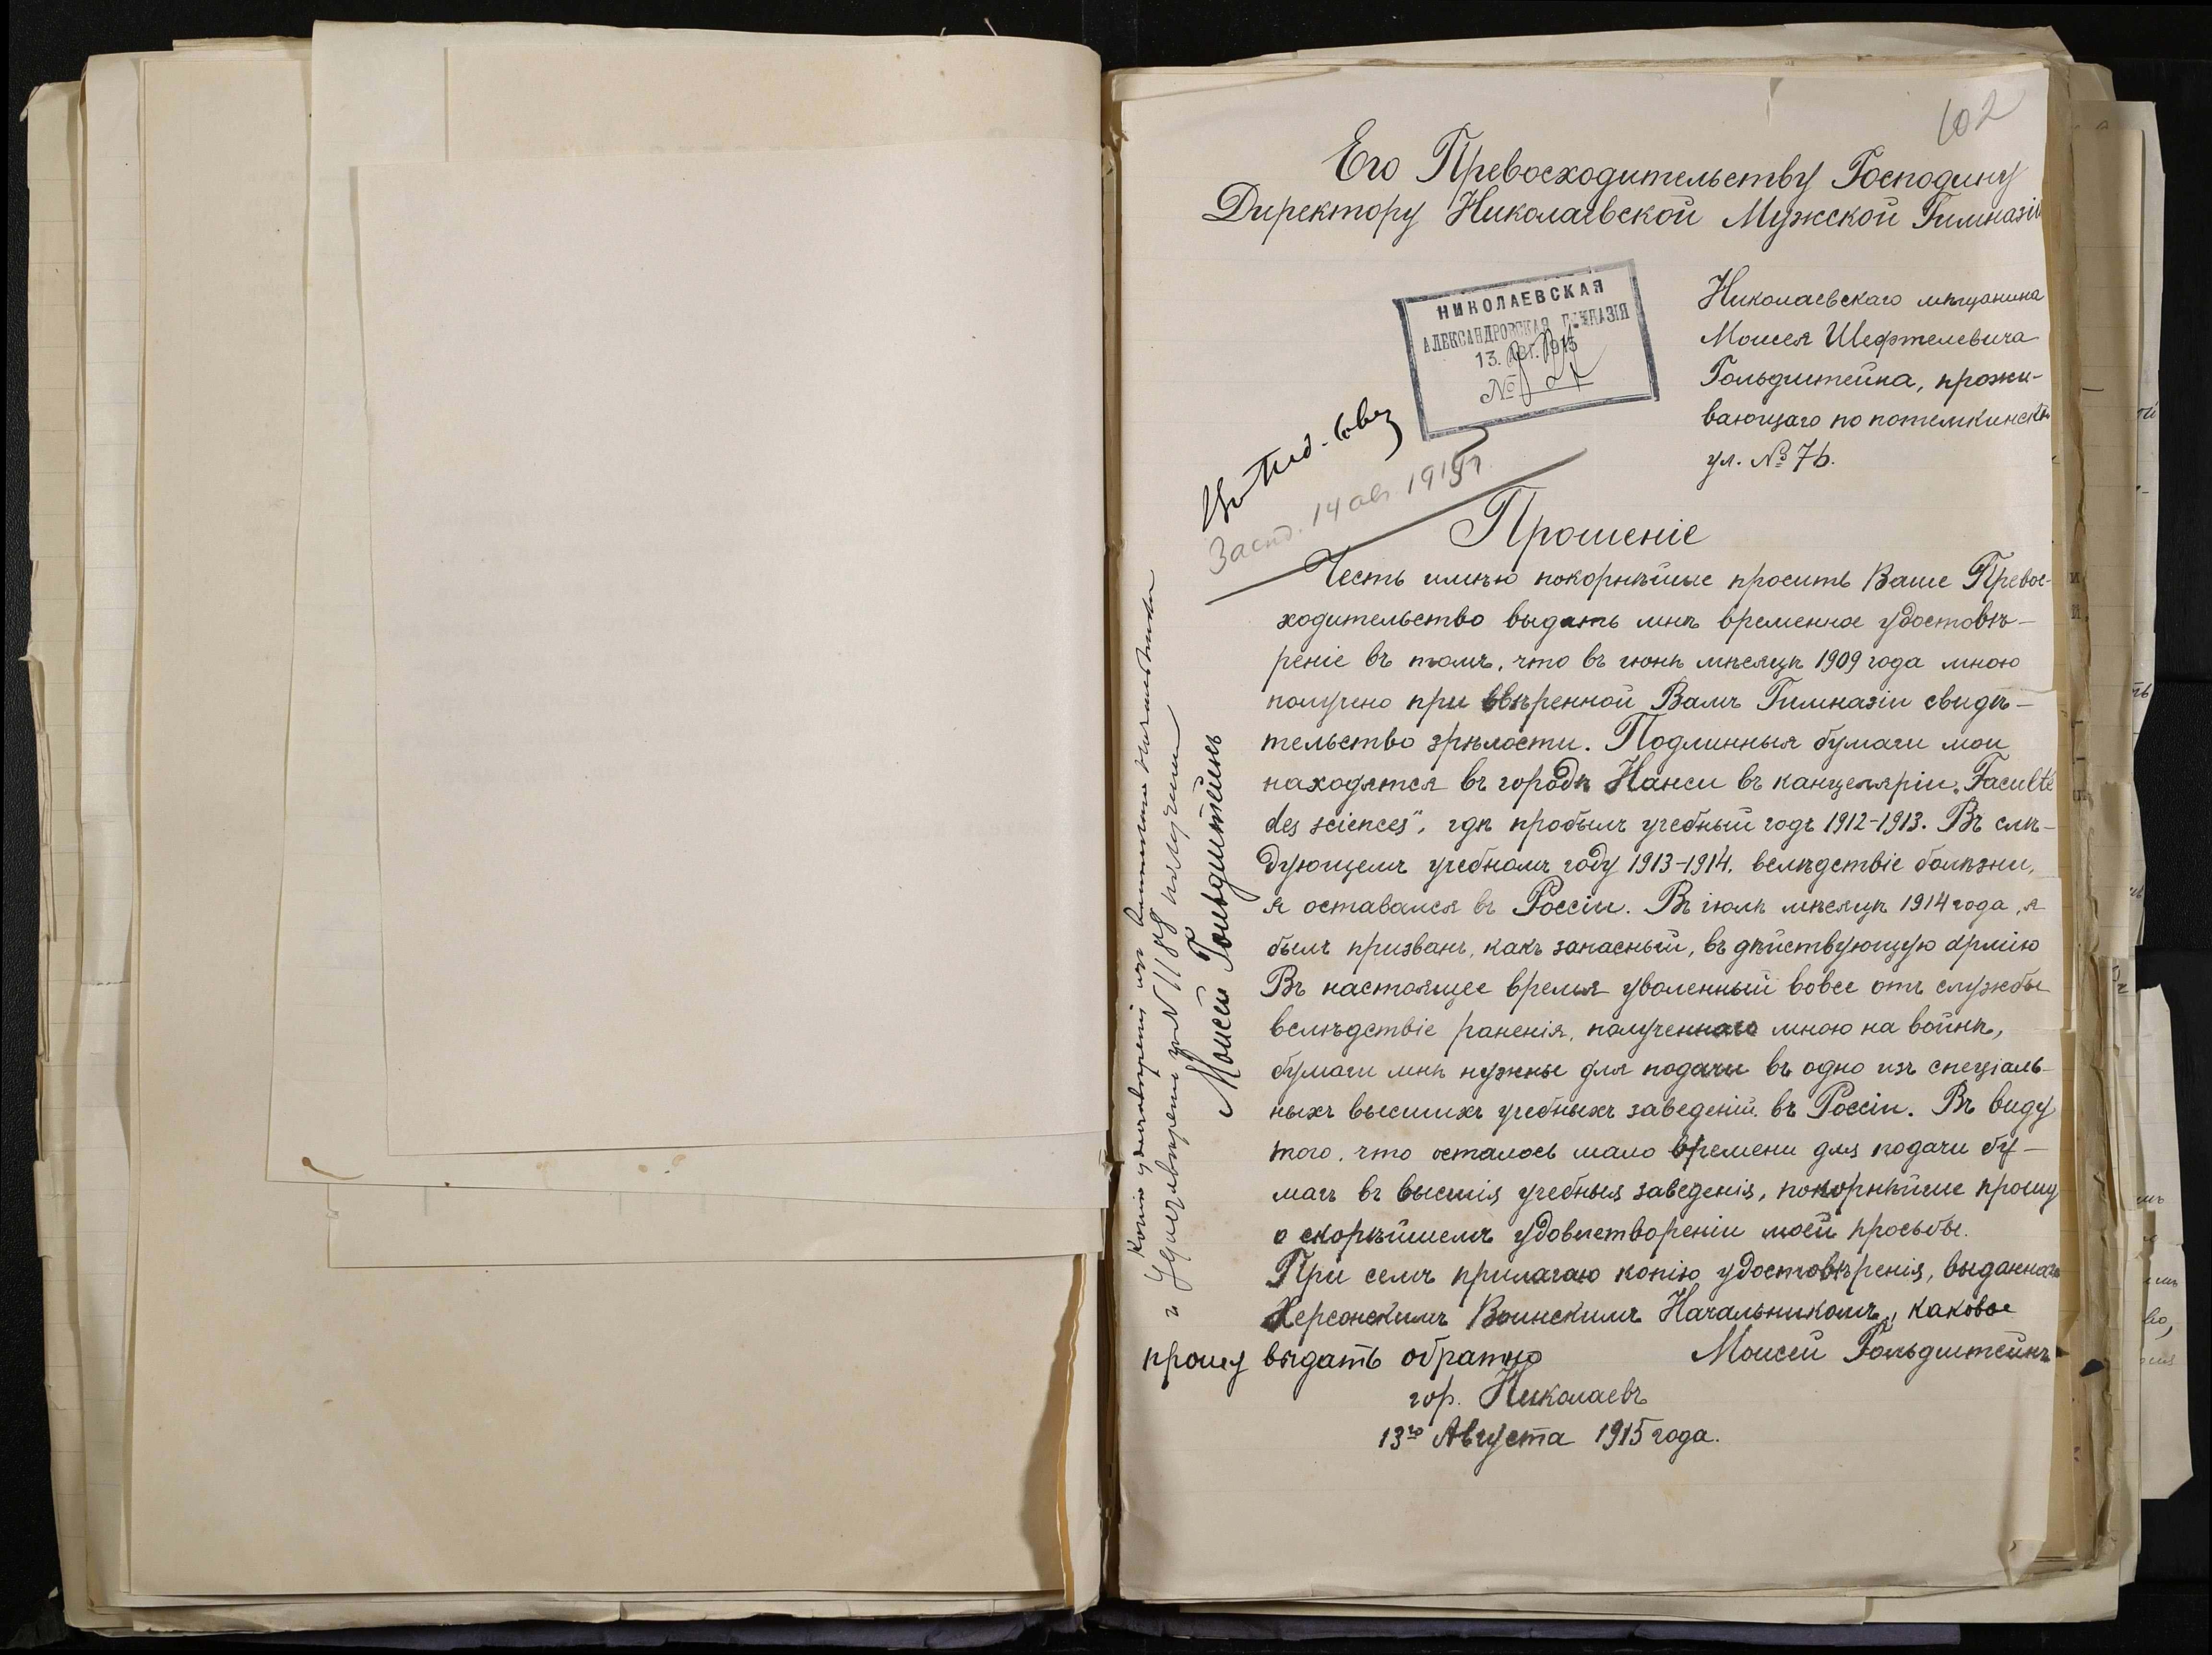 102
Его Превосходительству Господину
Директору Николаевской Мужской Гимназіи
НИКОЛАЕВСКАЯ
АЛЕКСАНДРОВСКАЯ ГИМНАЗІЯ
13. АВГ. 1915
№
Николаевскаго мѣщанина
Моисея Шефтелевича
Гольдштейна, прожи-
вающаго по потемкинской
ул. № 76.
14 авг 1915 г.
Прошеніе
Честь имѣю покорнѣйше просить Ваше Превос-
ходительство выдать мнѣ временное удостовѣ-
реніе въ томъ, что въ іюнѣ мѣсяцѣ 1909 года мною
получено при ввѣренной Вамъ Гимназіи свидѣ-
тельство зрѣлости. Подлинныя бумаги мои
находятся въ городѣ Нанси въ канцеляріи „Faculté
des sciences“, гдѣ пробылъ учебный годъ 1912-1913. Въ слѣ-
дующемъ учебномъ году 1913-1914, вслѣдствіе болѣзни,
я оставался въ Россіи. Въ іюлѣ мѣсяцѣ 1914 года, я
былъ призванъ, какъ запасный, въ дѣйствующую армію
Въ настоящее время уволенный вовсе отъ службы
вслѣдствіе раненія, полученнаго мною на войнѣ,
бумаги мнѣ нужны для подачи въ одно изъ спеціаль-
ныхъ высшихъ учебныхъ заведеній въ Россіи. Въ виду
того, что осталось мало времени для подачи бу-
магъ въ высшія учебныя заведенія, покорнѣйше прошу
о скорѣйшемъ удовлетвореніи моей просьбы.
При семъ прилагаю копію удостовѣренія, выданнаго
Херсонскимъ Воинскимъ Начальникомъ, каковое
прошу выдать обратно
Моисей Гольдштейнъ
гор. Николаевъ
13го Августа 1915 года.
Копію удостовѣренія отъ воинскаго начальника
и удостовѣреніе за № 1188 получилъ
Моисей Гольдштейнъ